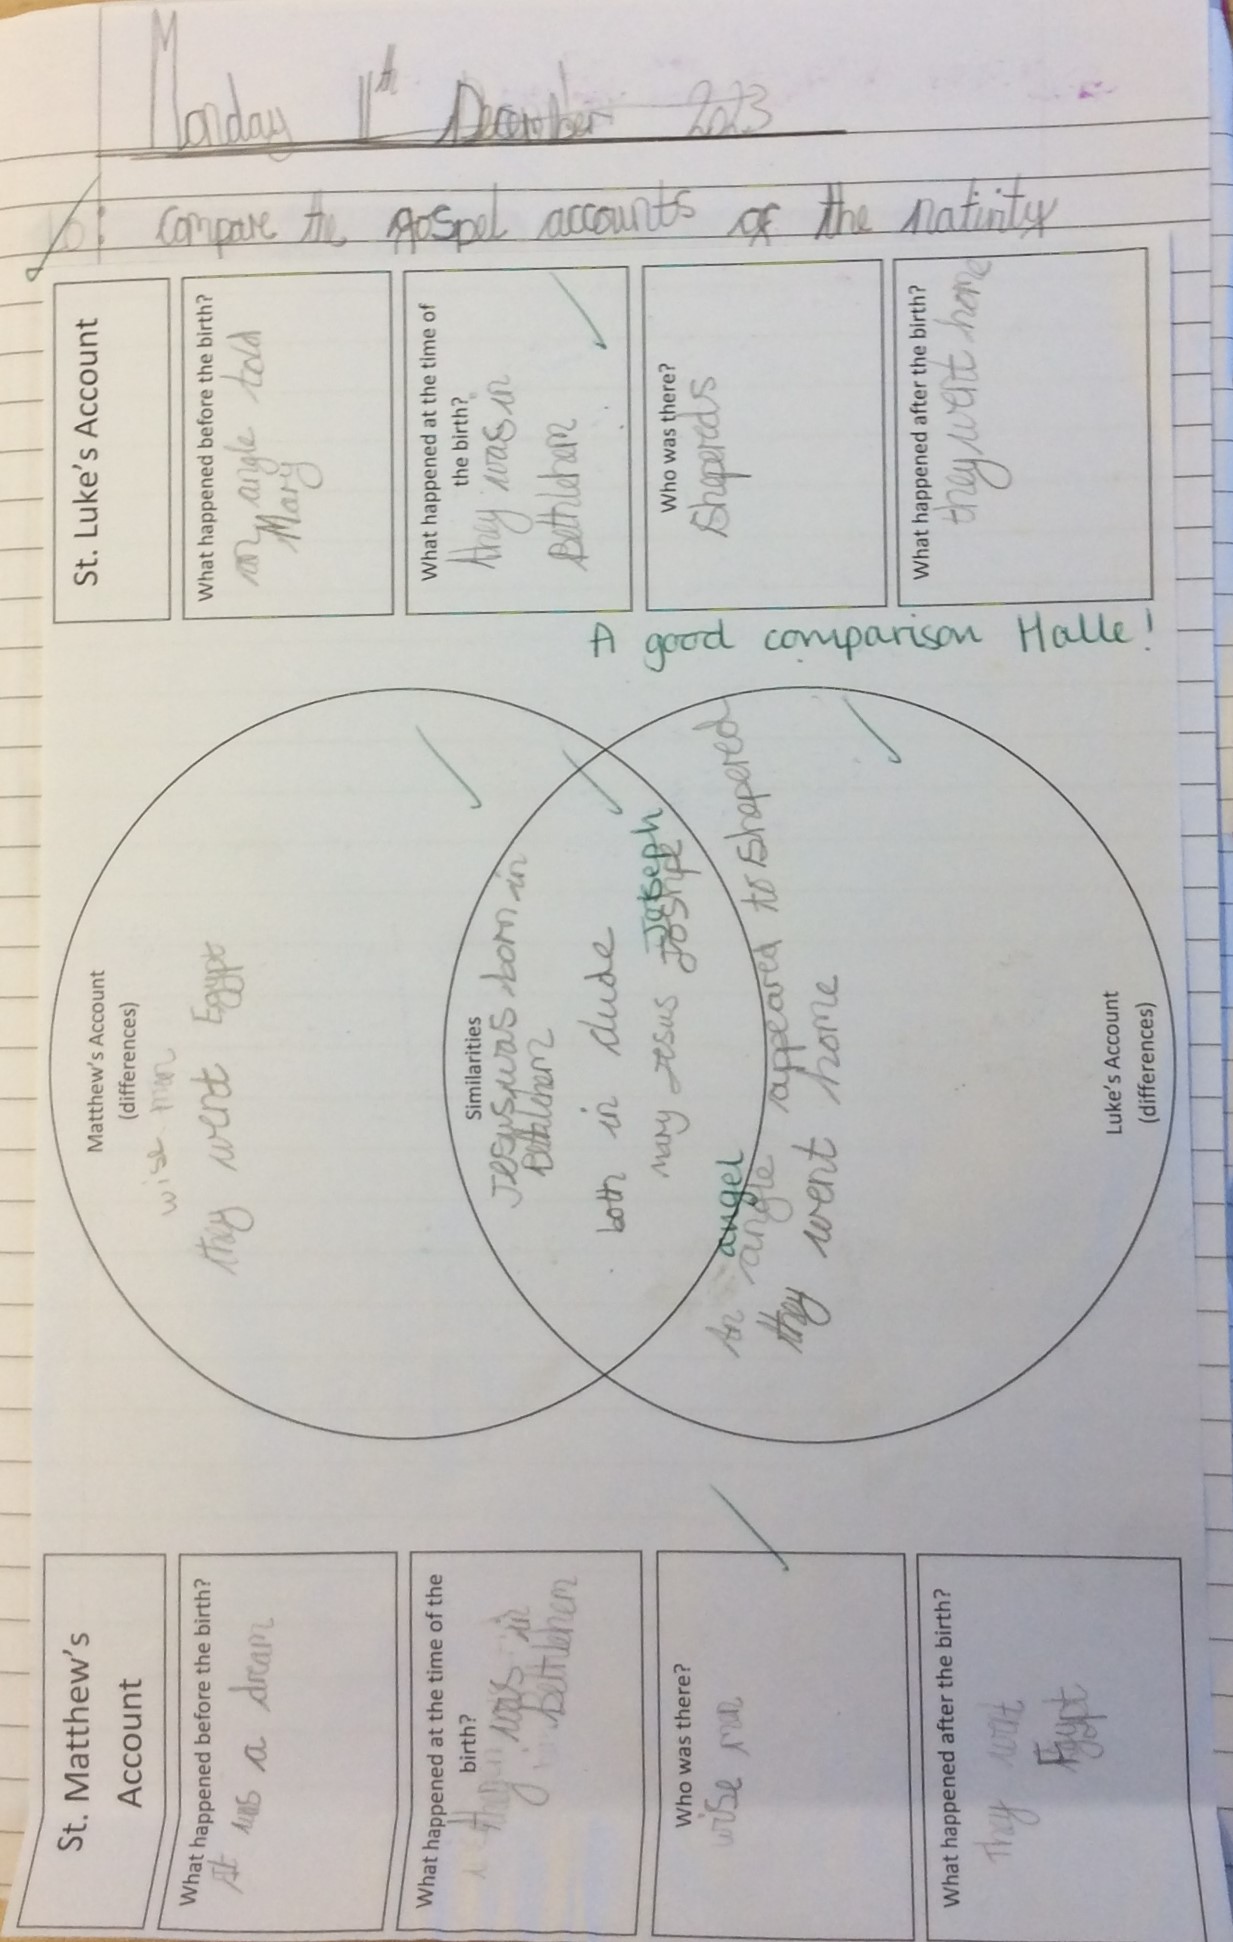 Monday 11th December 2023
Lo: Compare the gospel accounts of the nativity
St. Matthew's
Account
What happened before the birth?
it was a dream
What happened at the time of the
birth?
they was in
Bethlehem
Who was there?
wise man
What happened after the birth?
They went
Egypt
Matthew's Account
(differences)
wise man
they went Egypt
Similarities
Jesus was born in
Bethlehem
both in clude
Joseph
mary Jesus Joshpe
angel
An angle appeared to shapered
they went home
Luke's Account
(differences)
A good comparison Halle!
St. Luke's Account
What happened before the birth?
an angle told
Mary
What happened at the time of
the birth?
they was in
Bethlehem
Who was there?
Shapereds
What happened after the birth?
they went home